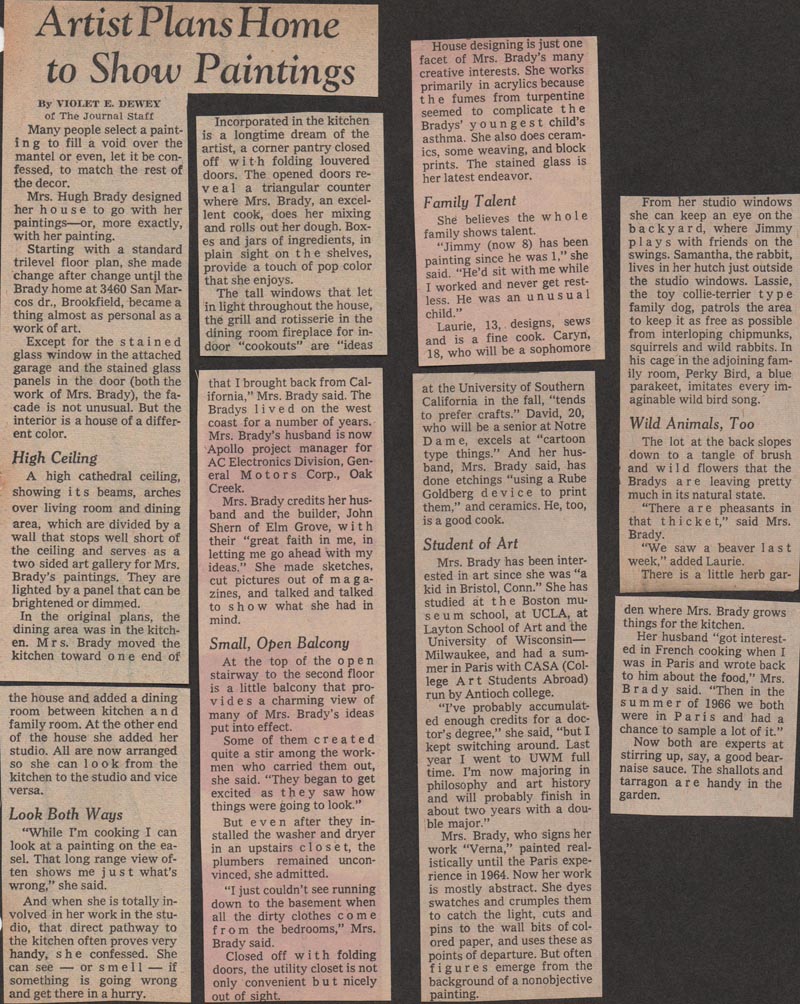 Artist Plans Home
to Show Paintings
By VIOLET E. DEWEY
of The Journal Staff
Many people select a paint-
ing to fill a void over the
mantel or even, let it be con-
fessed, to match the rest of
the decor.
Mrs. Hugh Brady designed
her house to go with her
paintings—or, more exactly,
with her painting.
Starting with a standard
trilevel floor plan, she made
change after change until the
Brady home at 3460 San Mar-
cos dr., Brookfield, became a
thing almost as personal as a
work of art.
Except for the stained
glass window in the attached
garage and the stained glass
panels in the door (both the
work of Mrs. Brady), the fa-
cade is not unusual. But the
interior is a house of a differ-
ent color.
High Ceiling
A high cathedral ceiling,
showing its beams, arches
over living room and dining
area, which are divided by a
wall that stops well short of
the ceiling and serves as a
two sided art gallery for Mrs.
Brady's paintings. They are
lighted by a panel that can be
brightened or dimmed.
In the original plans, the
dining area was in the kitch-
en. Mrs. Brady moved the
kitchen toward one end of
the house and added a dining
room between kitchen and
family room. At the other end
of the house she added her
studio. All are now arranged
so she can look from the
kitchen to the studio and vice
versa.
Look Both Ways
"While I'm cooking I can
look at a painting on the ea-
sel. That long range view of-
ten shows me just what's
wrong," she said.
And when she is totally in-
volved in her work in the stu-
dio, that direct pathway to
the kitchen often proves very
handy, she confessed. She
can see — or smell — if
something is going wrong
and get there in a hurry.
Incorporated in the kitchen
is a longtime dream of the
artist, a corner pantry closed
off with folding louvered
doors. The opened doors re-
veal a triangular counter
where Mrs. Brady, an excel-
lent cook, does her mixing
and rolls out her dough. Box-
es and jars of ingredients, in
plain sight on the shelves,
provide a touch of pop color
that she enjoys.
The tall windows that let
in light throughout the house,
the grill and rotisserie in the
dining room fireplace for in-
door "cookouts" are "ideas
that I brought back from Cal-
ifornia," Mrs. Brady said. The
Bradys lived on the west
coast for a number of years.
Mrs. Brady's husband is now
Apollo project manager for
AC Electronics Division, Gen-
eral Motors Corp., Oak
Creek.
Mrs. Brady credits her hus-
band and the builder, John
Shern of Elm Grove, with
their "great faith in me, in
letting me go ahead with my
ideas." She made sketches,
cut pictures out of maga-
zines, and talked and talked
to show what she had in
mind.
Small, Open Balcony
At the top of the open
stairway to the second floor
is a little balcony that pro-
vides a charming view of
many of Mrs. Brady's ideas
put into effect.
Some of them created
quite a stir among the work-
men who carried them out,
she said. "They began to get
excited as they saw how
things were going to look."
But even after they in-
stalled the washer and dryer
in an upstairs closet, the
plumbers remained uncon-
vinced, she admitted.
"I just couldn't see running
down to the basement when
all the dirty clothes come
from the bedrooms," Mrs.
Brady said.
Closed off with folding
doors, the utility closet is not
only convenient but nicely
out of sight.
House designing is just one
facet of Mrs. Brady's many
creative interests. She works
primarily in acrylics because
the fumes from turpentine
seemed to complicate the
Bradys' youngest child's
asthma. She also does ceram-
ics, some weaving, and block
prints. The stained glass is
her latest endeavor.
Family Talent
She believes the whole
family shows talent.
"Jimmy (now 8) has been
painting since he was 1," she
said. "He'd sit with me while
I worked and never get rest-
less. He was an unusual
child."
Laurie, 13, designs, sews
and is a fine cook. Caryn,
18, who will be a sophomore
at the University of Southern
California in the fall, "tends
to prefer crafts." David, 20,
who will be a senior at Notre
Dame, excels at "cartoon
type things." And her hus-
band, Mrs. Brady said, has
done etchings "using a Rube
Goldberg device to print
them," and ceramics. He, too,
is a good cook.
Student of Art
Mrs. Brady has been inter-
ested in art since she was "a
kid in Bristol, Conn." She has
studied at the Boston mu-
seum school, at UCLA, at
Layton School of Art and the
University of Wisconsin—
Milwaukee, and had a sum-
mer in Paris with CASA (Col-
lege Art Students Abroad)
run by Antioch college.
"I've probably accumulat-
ed enough credits for a doc-
tor's degree," she said, "but I
kept switching around. Last
year I went to UWM full
time. I'm now majoring in
philosophy and art history
and will probably finish in
about two years with a dou-
ble major."
Mrs. Brady, who signs her
work "Verna," painted real-
istically until the Paris expe-
rience in 1964. Now her work
is mostly abstract. She dyes
swatches and crumples them
to catch the light, cuts and
pins to the wall bits of col-
ored paper, and uses these as
points of departure. But often
figures emerge from the
background of a nonobjective
painting.
From her studio windows
she can keep an eye on the
backyard, where Jimmy
plays with friends on the
swings. Samantha, the rabbit,
lives in her hutch just outside
the studio windows. Lassie,
the toy collie-terrier type
family dog, patrols the area
to keep it as free as possible
from interloping chipmunks,
squirrels and wild rabbits. In
his cage in the adjoining fam-
ily room, Perky Bird, a blue
parakeet, imitates every im-
aginable wild bird song.
Wild Animals, Too
The lot at the back slopes
down to a tangle of brush
and wild flowers that the
Bradys are leaving pretty
much in its natural state.
"There are pheasants in
that thicket," said Mrs.
Brady.
"We saw a beaver last
week," added Laurie.
There is a little herb gar-
den where Mrs. Brady grows
things for the kitchen.
Her husband "got interest-
ed in French cooking when I
was in Paris and wrote back
to him about the food," Mrs.
Brady said. "Then in the
summer of 1966 we both
were in Paris and had a
chance to sample a lot of it."
Now both are experts at
stirring up, say, a good bear-
naise sauce. The shallots and
tarragon are handy in the
garden.